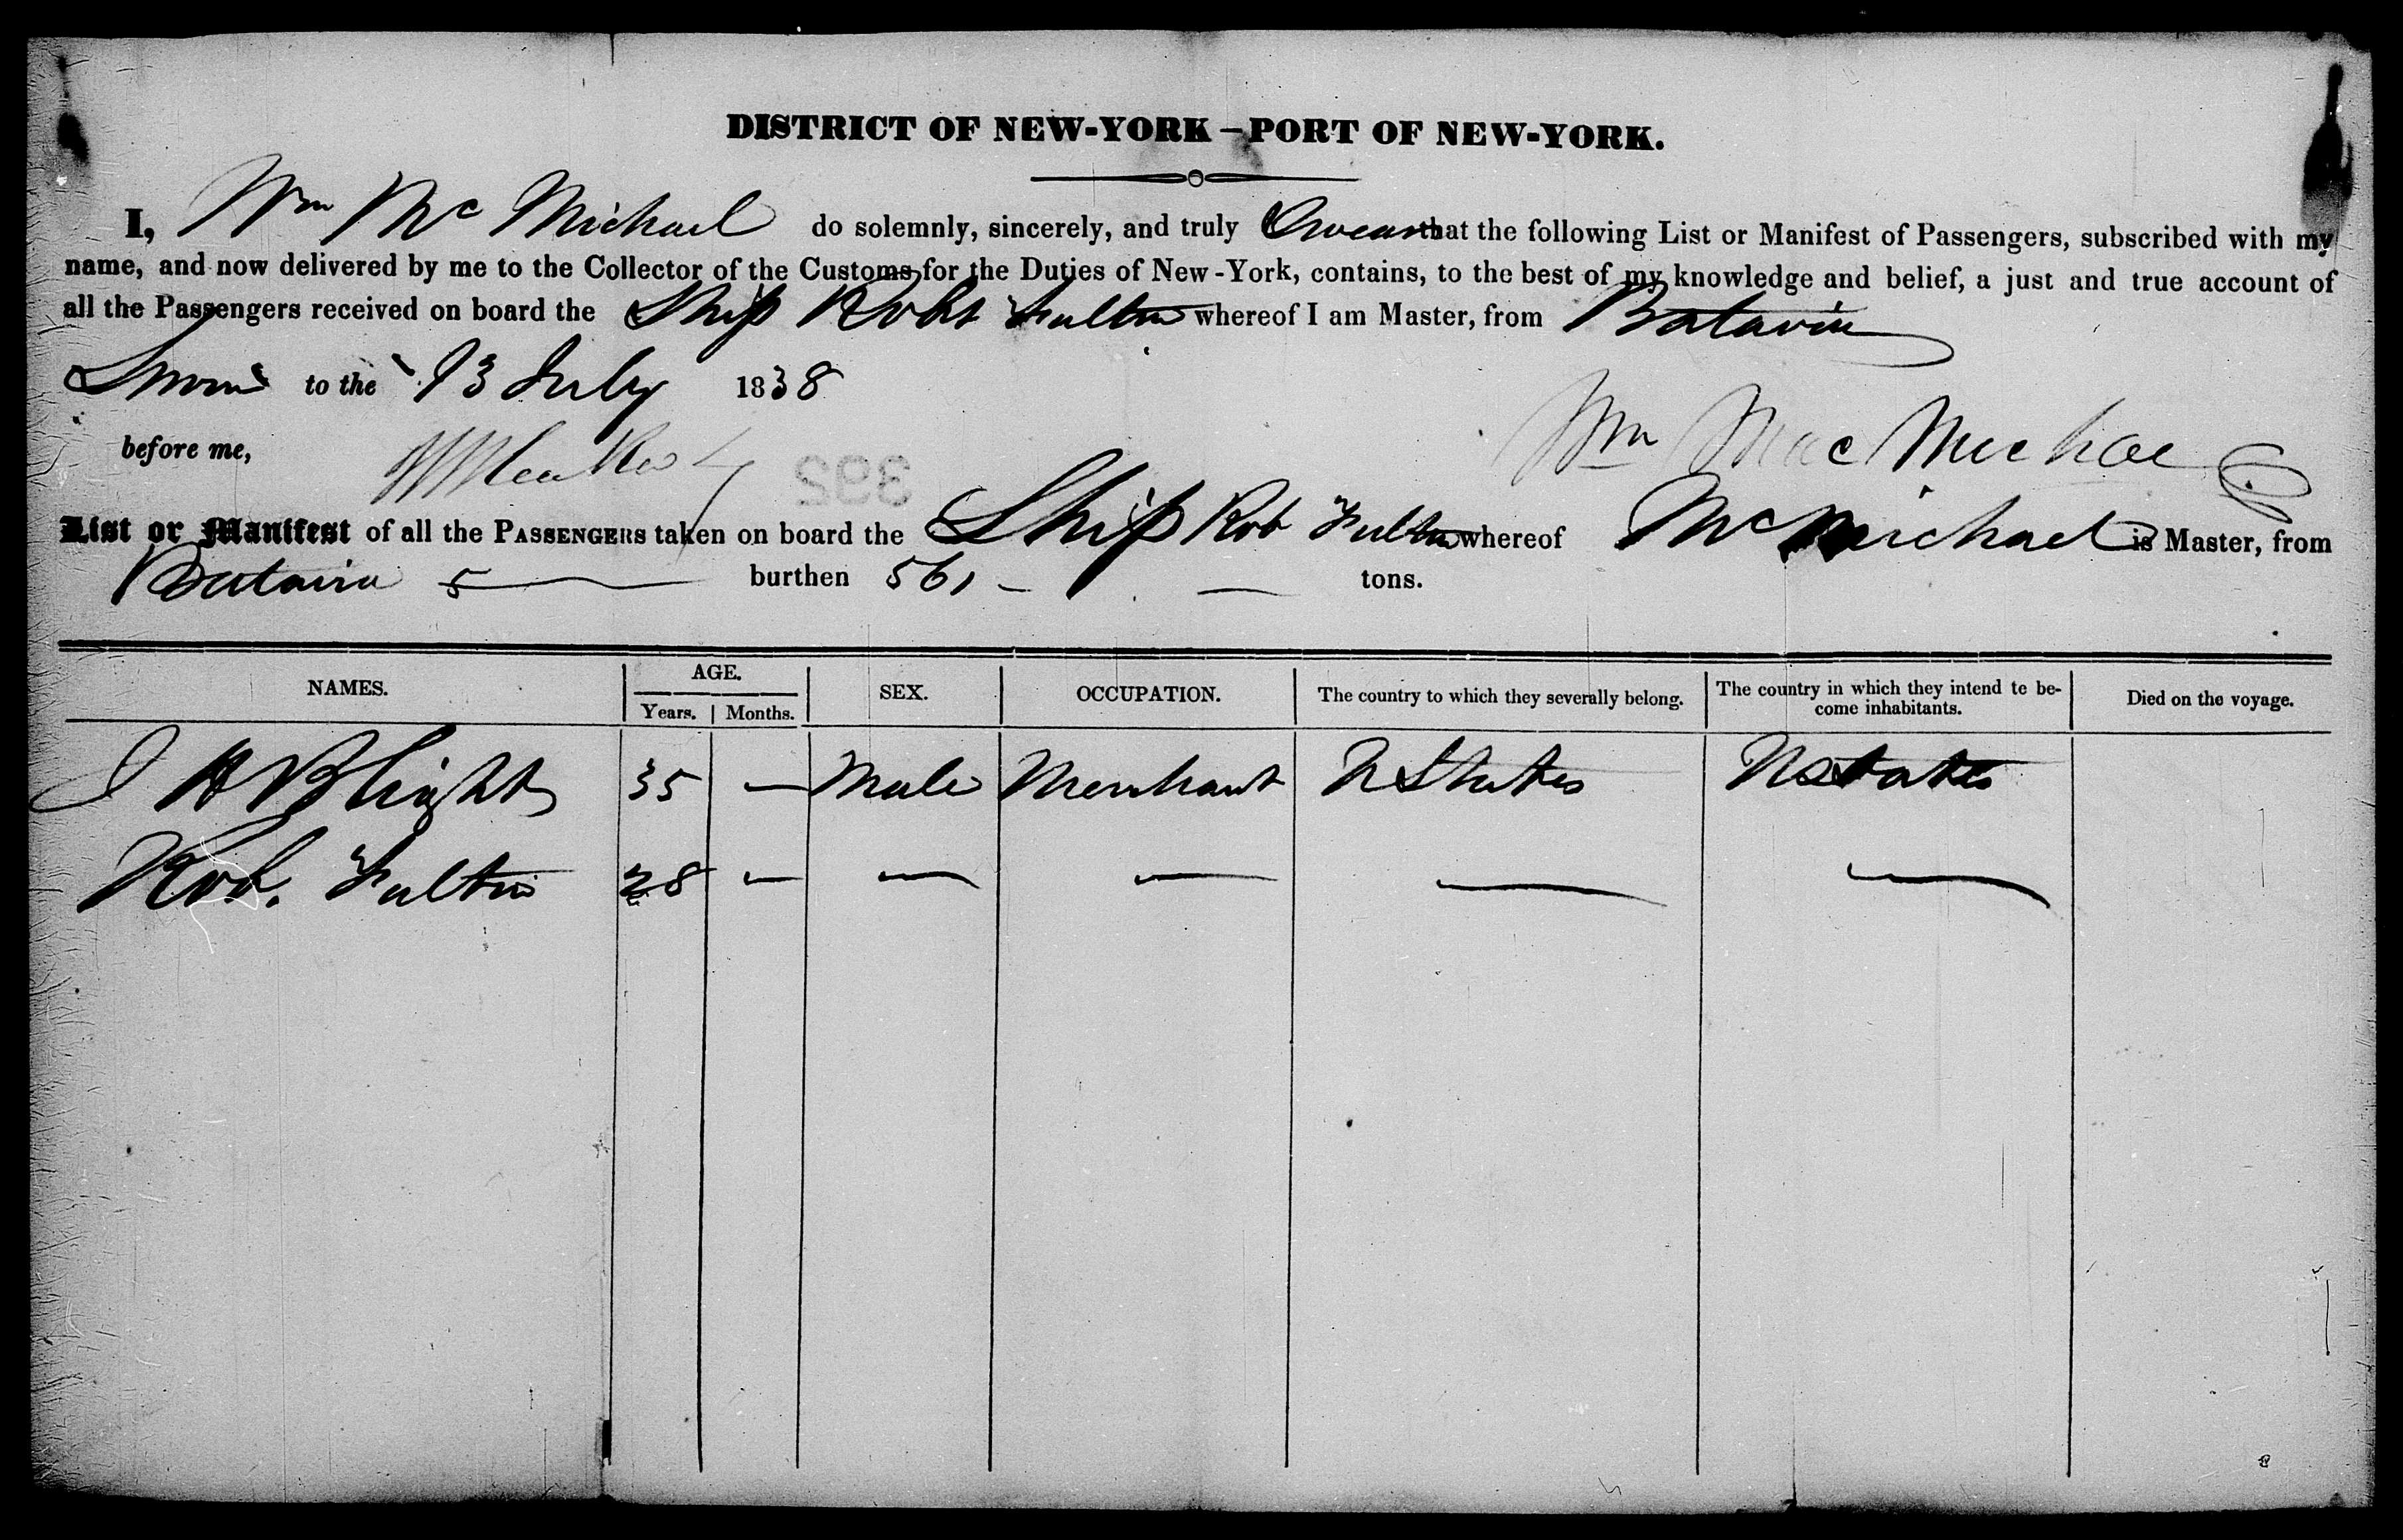 DISTRICT OF NEW-YORK—PORT OF NEW-YORK.
I, Wm McMichael do solemnly, sincerely, and truly Swear that the following List or Manifest of Passengers, subscribed with my
name, and now delivered by me to the Collector of the Customs for the Duties of New-York, contains, to the best of my knowledge and belief, a just and true account of
all the Passengers received on board the Ship Robt Fulton whereof I am Master, from Batavia
Sworn to the 13 July 1838
Wm MacMichael
before me,
392
List or Manifest of all the PASSENGERS taken on board the Ship Rob Fulton whereof McMichael is Master, from
Batavia burthen 561 tons.
NAMES. AGE. Years. Months. SEX. OCCUPATION. The country to which they severally belong. The country in which they intend te become inhabitants. Died on the voyage.
J H Blight 35 — Male Merchant U States U States
Rob. Fulton 28 — — — — —